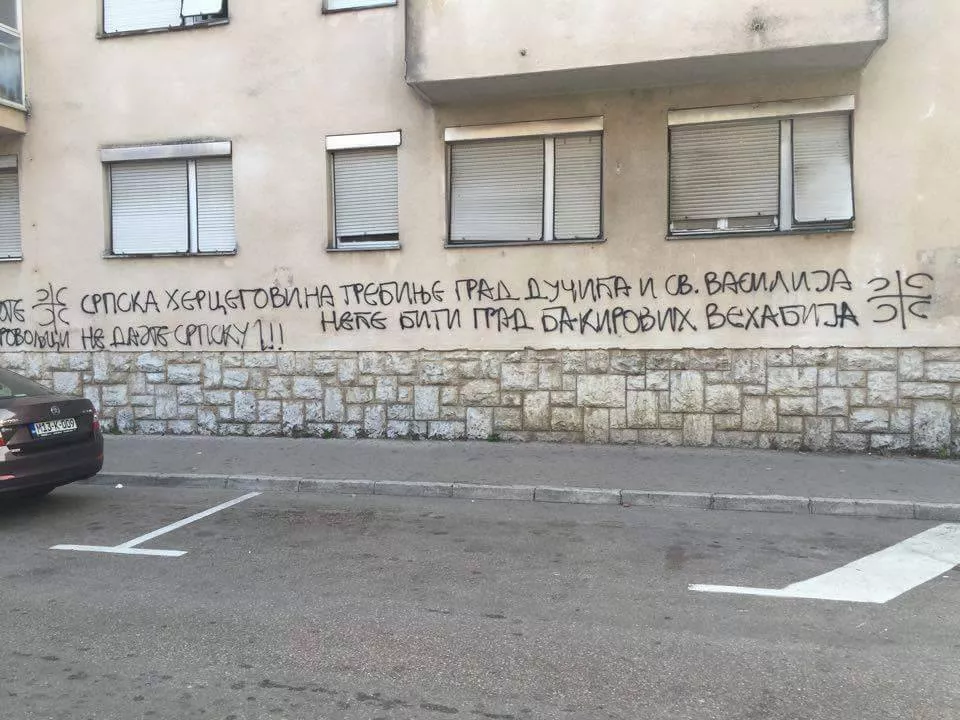 СРПСКА ХЕРЦЕГОВИНА ТРЕБИЊЕ ГРАД ДУЧИЋА И СВ. ВАСИЛИЈА
НЕЋЕ БИТИ ГРАД БАКИРОВИХ ВЕХАБИЈА
НЕ ДАЈТЕ СРПСКУ!!!
M13-K-009